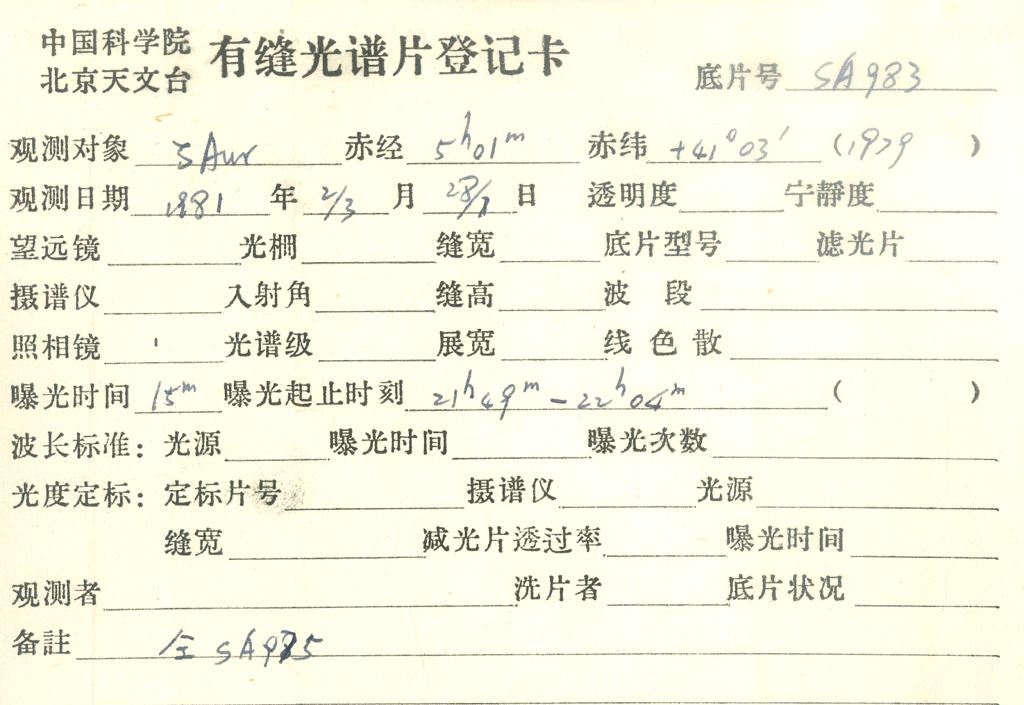 中国科学院
北京天文台
有缝光谱片登记卡
底片号 SA983
观测对象 ζ Aur 赤经 5h01m 赤纬 +41°03′ (1979 )
观测日期 1981 年 2/3 月 28/1 日 透明度 宁静度
望远镜 光栅 缝宽 底片型号 滤光片
摄谱仪 入射角 缝高 波段
照相镜 光谱级 展宽 线色散
曝光时间 15m 曝光起止时刻 21h49m - 22h04m ( )
波长标准: 光源 曝光时间 曝光次数
光度定标: 定标片号 摄谱仪 光源
缝宽 减光片透过率 曝光时间
观测者 洗片者 底片状况
备註 仝 SA975